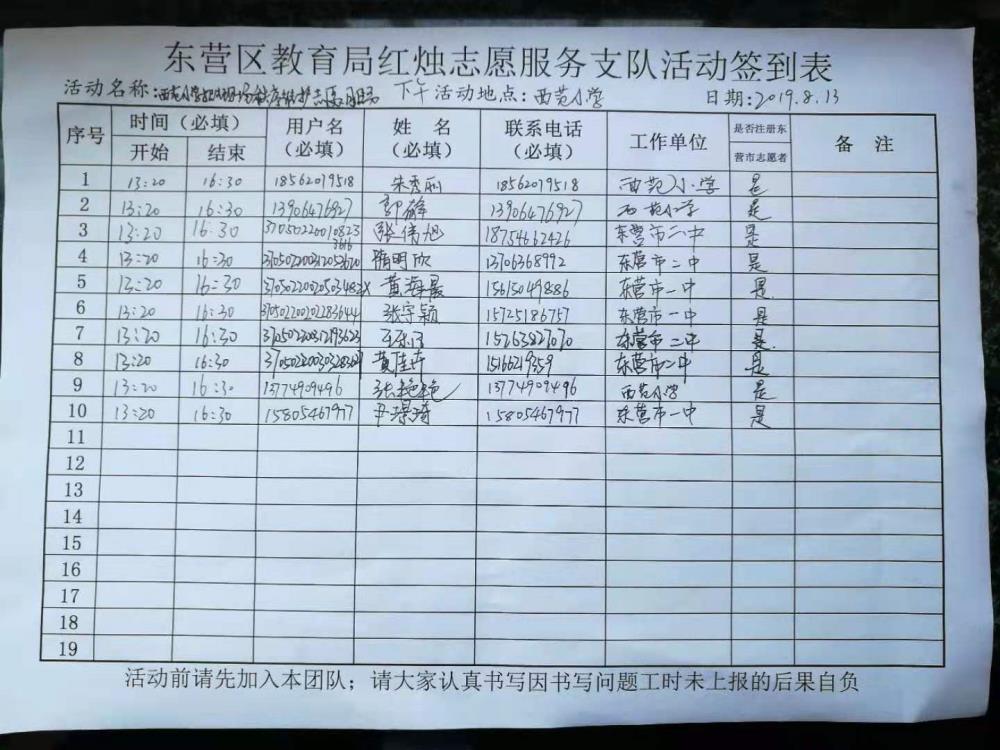 东营区教育局红烛志愿服务支队活动签到表
活动名称: 西范小学 志愿服务 下午 活动地点: 西范小学 日期: 2019.8.13
序号 时间（必填） 用户名（必填） 姓 名（必填） 联系电话（必填） 工作单位 是否注册东营市志愿者 备 注
开始 结束
1 13:20 16:30 18562079518 朱秀丽 18562079518 西范小学 是
2 13:20 16:30 13906476927 郭峰 13906476927 西范小学 是
3 13:20 16:30 370502200108233616 张倩旭 18754662426 东营市二中 是
4 13:20 16:30 隋明欣 13706368992 东营市二中 是
5 13:20 16:30 黄海晨 15615049886 东营市一中 是
6 13:20 16:30 370502200202283644 张宇颖 15725186757 东营市一中 是
7 13:20 16:30 15263827070 东营市二中 是
8 13:20 16:30 黄佳卉 15166219359 东营市二中 是
9 13:20 16:30 13774909496 张艳艳 13774909496 西范小学 是
10 13:20 16:30 15805467977 尹璟琦 15805467977 东营市一中 是
11
12
13
14
15
16
17
18
19
活动前请先加入本团队；请大家认真书写因书写问题工时未上报的后果自负